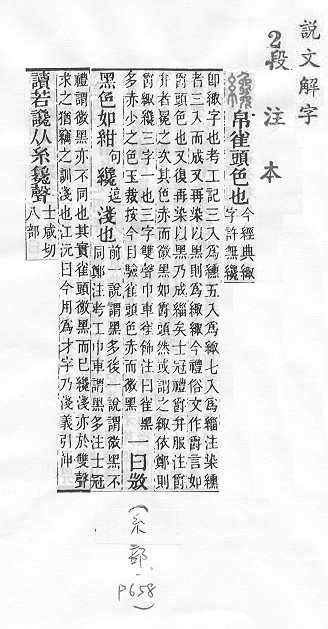 説文解字
2段注本
纔 帛雀頭色也 今經典緅
字許無纔
即緅字也考工記三入爲纁五入爲緅七入爲緇注染纁
者三入而成又再染以黑則爲緅緅今禮俗文作爵言如
爵頭色也又復再染以黑乃成緇矣士冠禮爵弁服注爵
弁者冕之次其色赤而微黑如爵頭然或謂之緅依鄭則
爵緅纔三字一也三字雙聲巾車雀飾注曰雀黑
多赤少之色玉裁按今目驗雀頭色赤而微黑 一曰微
黑色如紺 句 纔 逗 淺也 前一說謂黑多後一說謂微黑不
同鄭注考工巾車謂黑多注士冠
禮謂微黑亦不同也其實雀頭微黑而已纔淺亦於雙聲
求之猶竊之訓淺也江沅曰今用爲才字乃淺義引伸
讀若讒从糸毚聲 士咸切
八部
(糸部·P658)